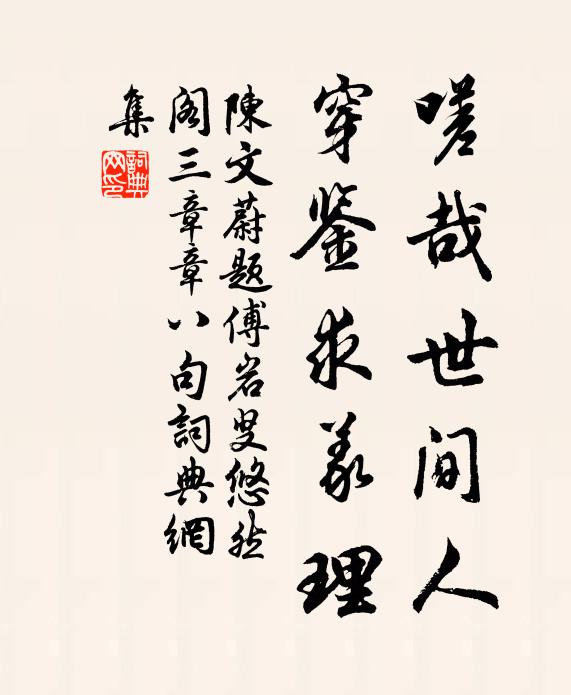 嗟哉世间人
穿鉴求义理
陳文蔚题傅岩叟悠然
阁三章章八句詞典網
集
詞典
网印